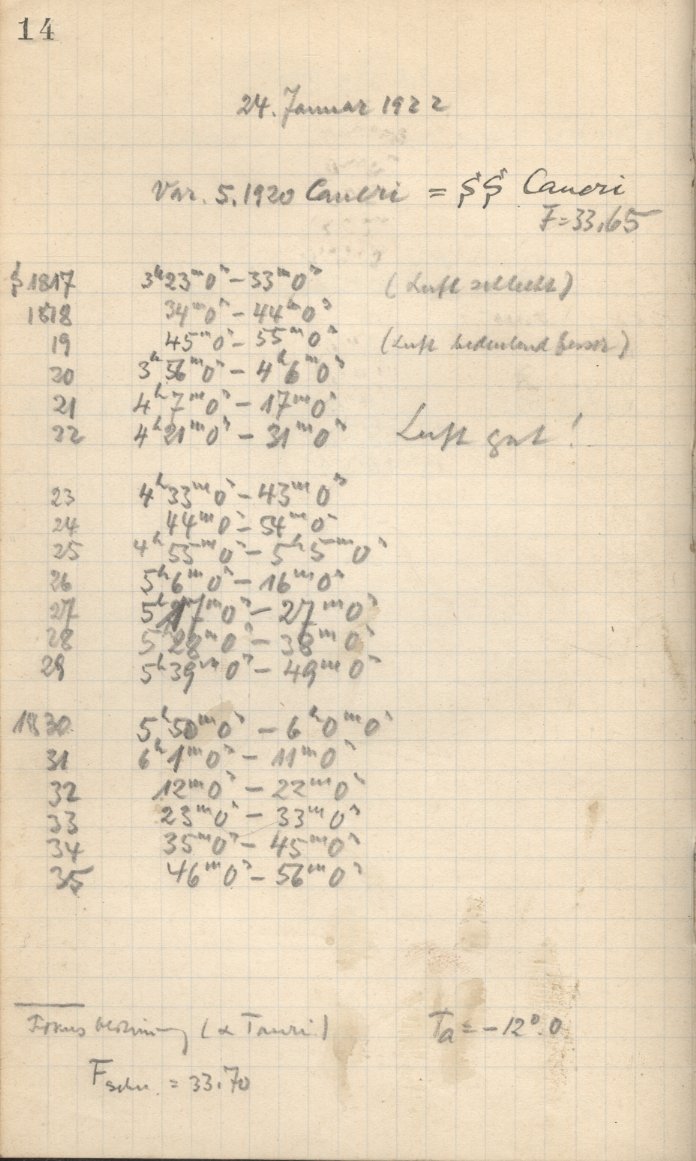 14
24. Januar 1922
Var. 5.1920 Cancri = SS Cancri
F=33,65
S 1817 3ʰ23ᵐ0ˢ – 33ᵐ0ˢ (Luft schlecht)
1818 34ᵐ0ˢ – 44ᵐ0ˢ
19 45ᵐ0ˢ – 55ᵐ0ˢ (Luft bedeutend besser)
20 3ʰ56ᵐ0ˢ – 4ʰ6ᵐ0ˢ
21 4ʰ7ᵐ0ˢ – 17ᵐ0ˢ
22 4ʰ21ᵐ0ˢ – 31ᵐ0ˢ Luft gut!
23 4ʰ33ᵐ0ˢ – 43ᵐ0ˢ
24 44ᵐ0ˢ – 54ᵐ0ˢ
25 4ʰ55ᵐ0ˢ – 5ʰ5ᵐ0ˢ
26 5ʰ6ᵐ0ˢ – 16ᵐ0ˢ
27 5ʰ17ᵐ0ˢ – 27ᵐ0ˢ
28 5ʰ28ᵐ0ˢ – 38ᵐ0ˢ
29 5ʰ39ᵐ0ˢ – 49ᵐ0ˢ
1830 5ʰ50ᵐ0ˢ – 6ʰ0ᵐ0ˢ
31 6ʰ1ᵐ0ˢ – 11ᵐ0ˢ
32 12ᵐ0ˢ – 22ᵐ0ˢ
33 23ᵐ0ˢ – 33ᵐ0ˢ
34 35ᵐ0ˢ – 45ᵐ0ˢ
35 46ᵐ0ˢ – 56ᵐ0ˢ
Fokusbestimmung (α Tauri) Ta = –12°.0
F = 33.70